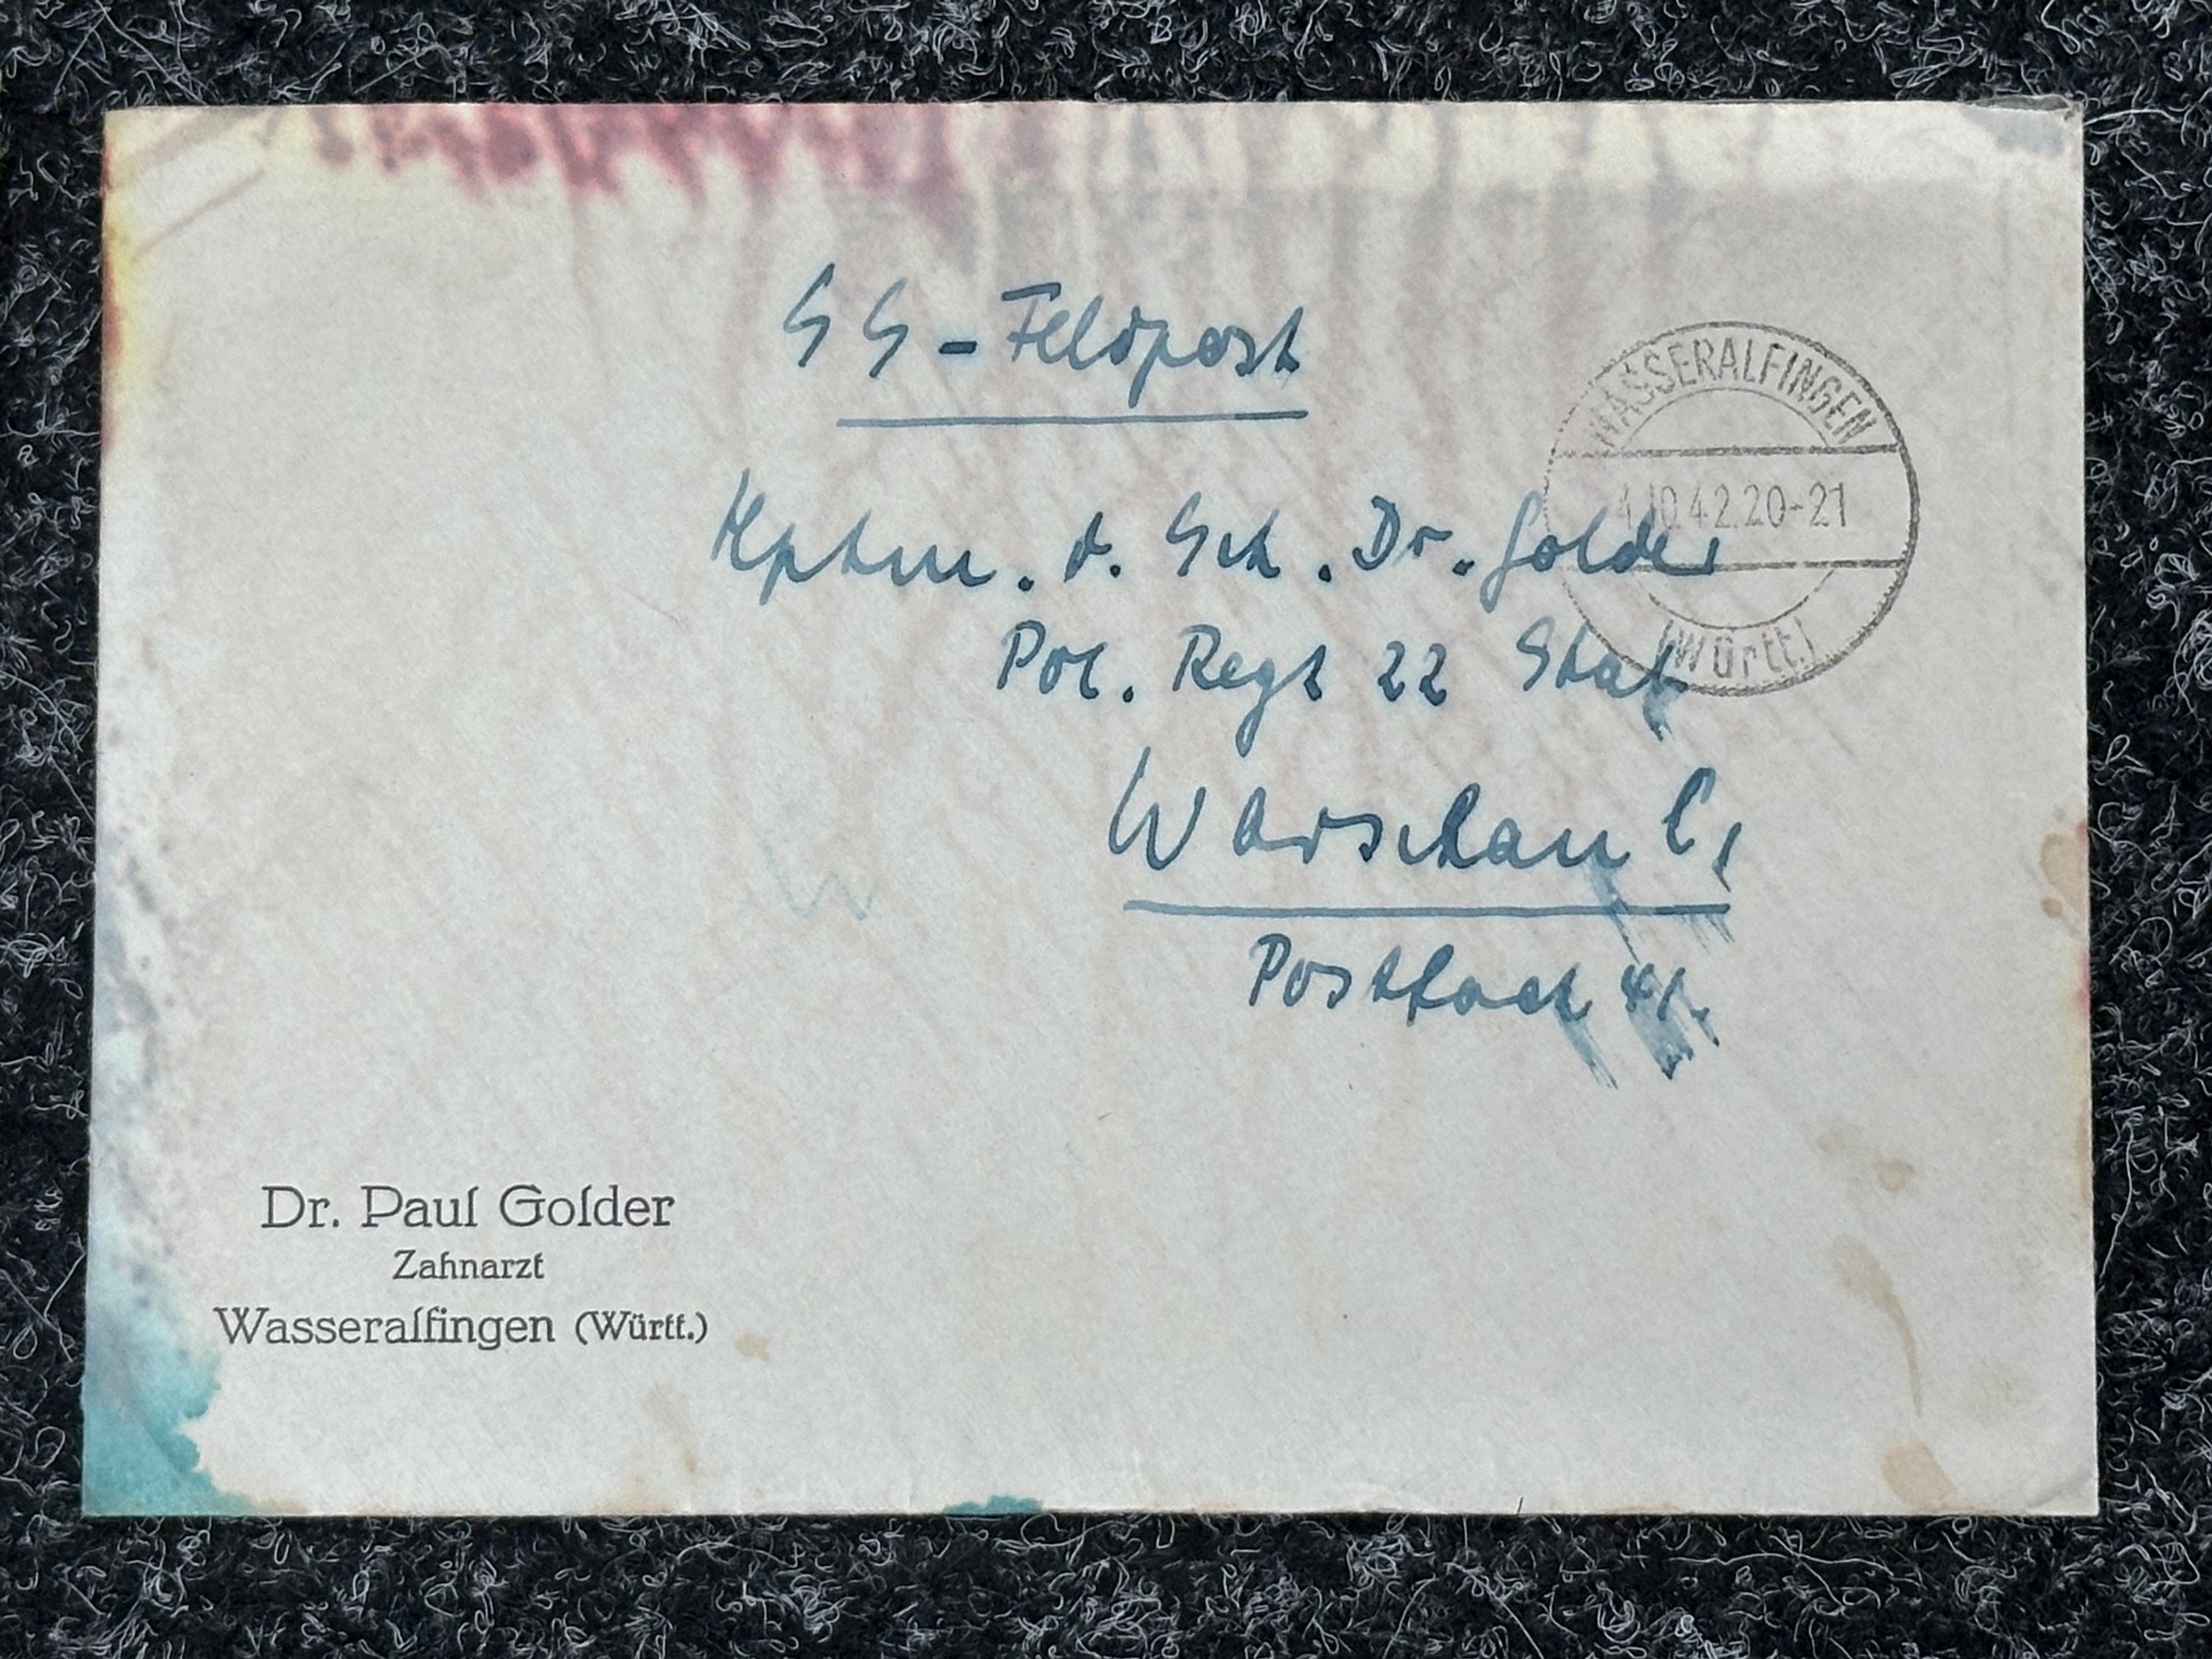 SS-Feldpost
WASSERALFINGEN
4.10.42.20-21
(Württ.)
Hptm. d. Sch. Dr. Golder
Pol. Regt 22 Stab
Warschau C1
Postfach 41.
Dr. Paul Golder
Zahnarzt
Wasseralfingen (Württ.)